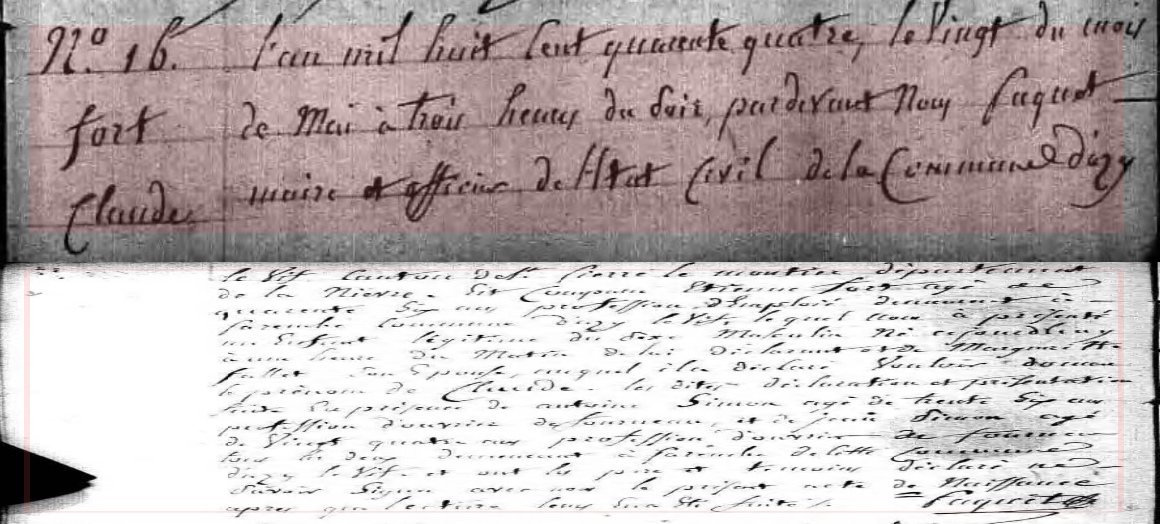 N.° 16. l'an mil huit Cent quarente quatre, le Vingt du mois
fort de Mai à trois heures du Soir, pardevant Nous faquet
Claude. maire et officier de l'Etat Civil de la Commune d'izy
le Vif Canton de St. pierre le moutier département
de la Nievre. Est Comparu Etienne fort agé de
quarente Six ans profession demeurant à
commune d'izy le Vif, lequel nous a présenté
un Enfant légitime du Sexe Masculin Né
à une heure du Matin de lui déclarant et de Margueritte
fallet Son Epouse, auquel il a déclaré Vouloir donner
le prénom de Claude. les dites déclaration et présentation
faite En présence de antoine Simon agé de trente Six ans
profession d'ouvrier de fourneau, et de jean Simon agé
de Vingt quatre ans profession d'ouvrier de fourneau
tous les deux demeurant à de la ditte Commune
d'izy le Vif et ont les père et temoins déclaré ne
Savoir Signer avec nous le présent acte de Naissance
apres que lecture leurs En a été faite. faquet